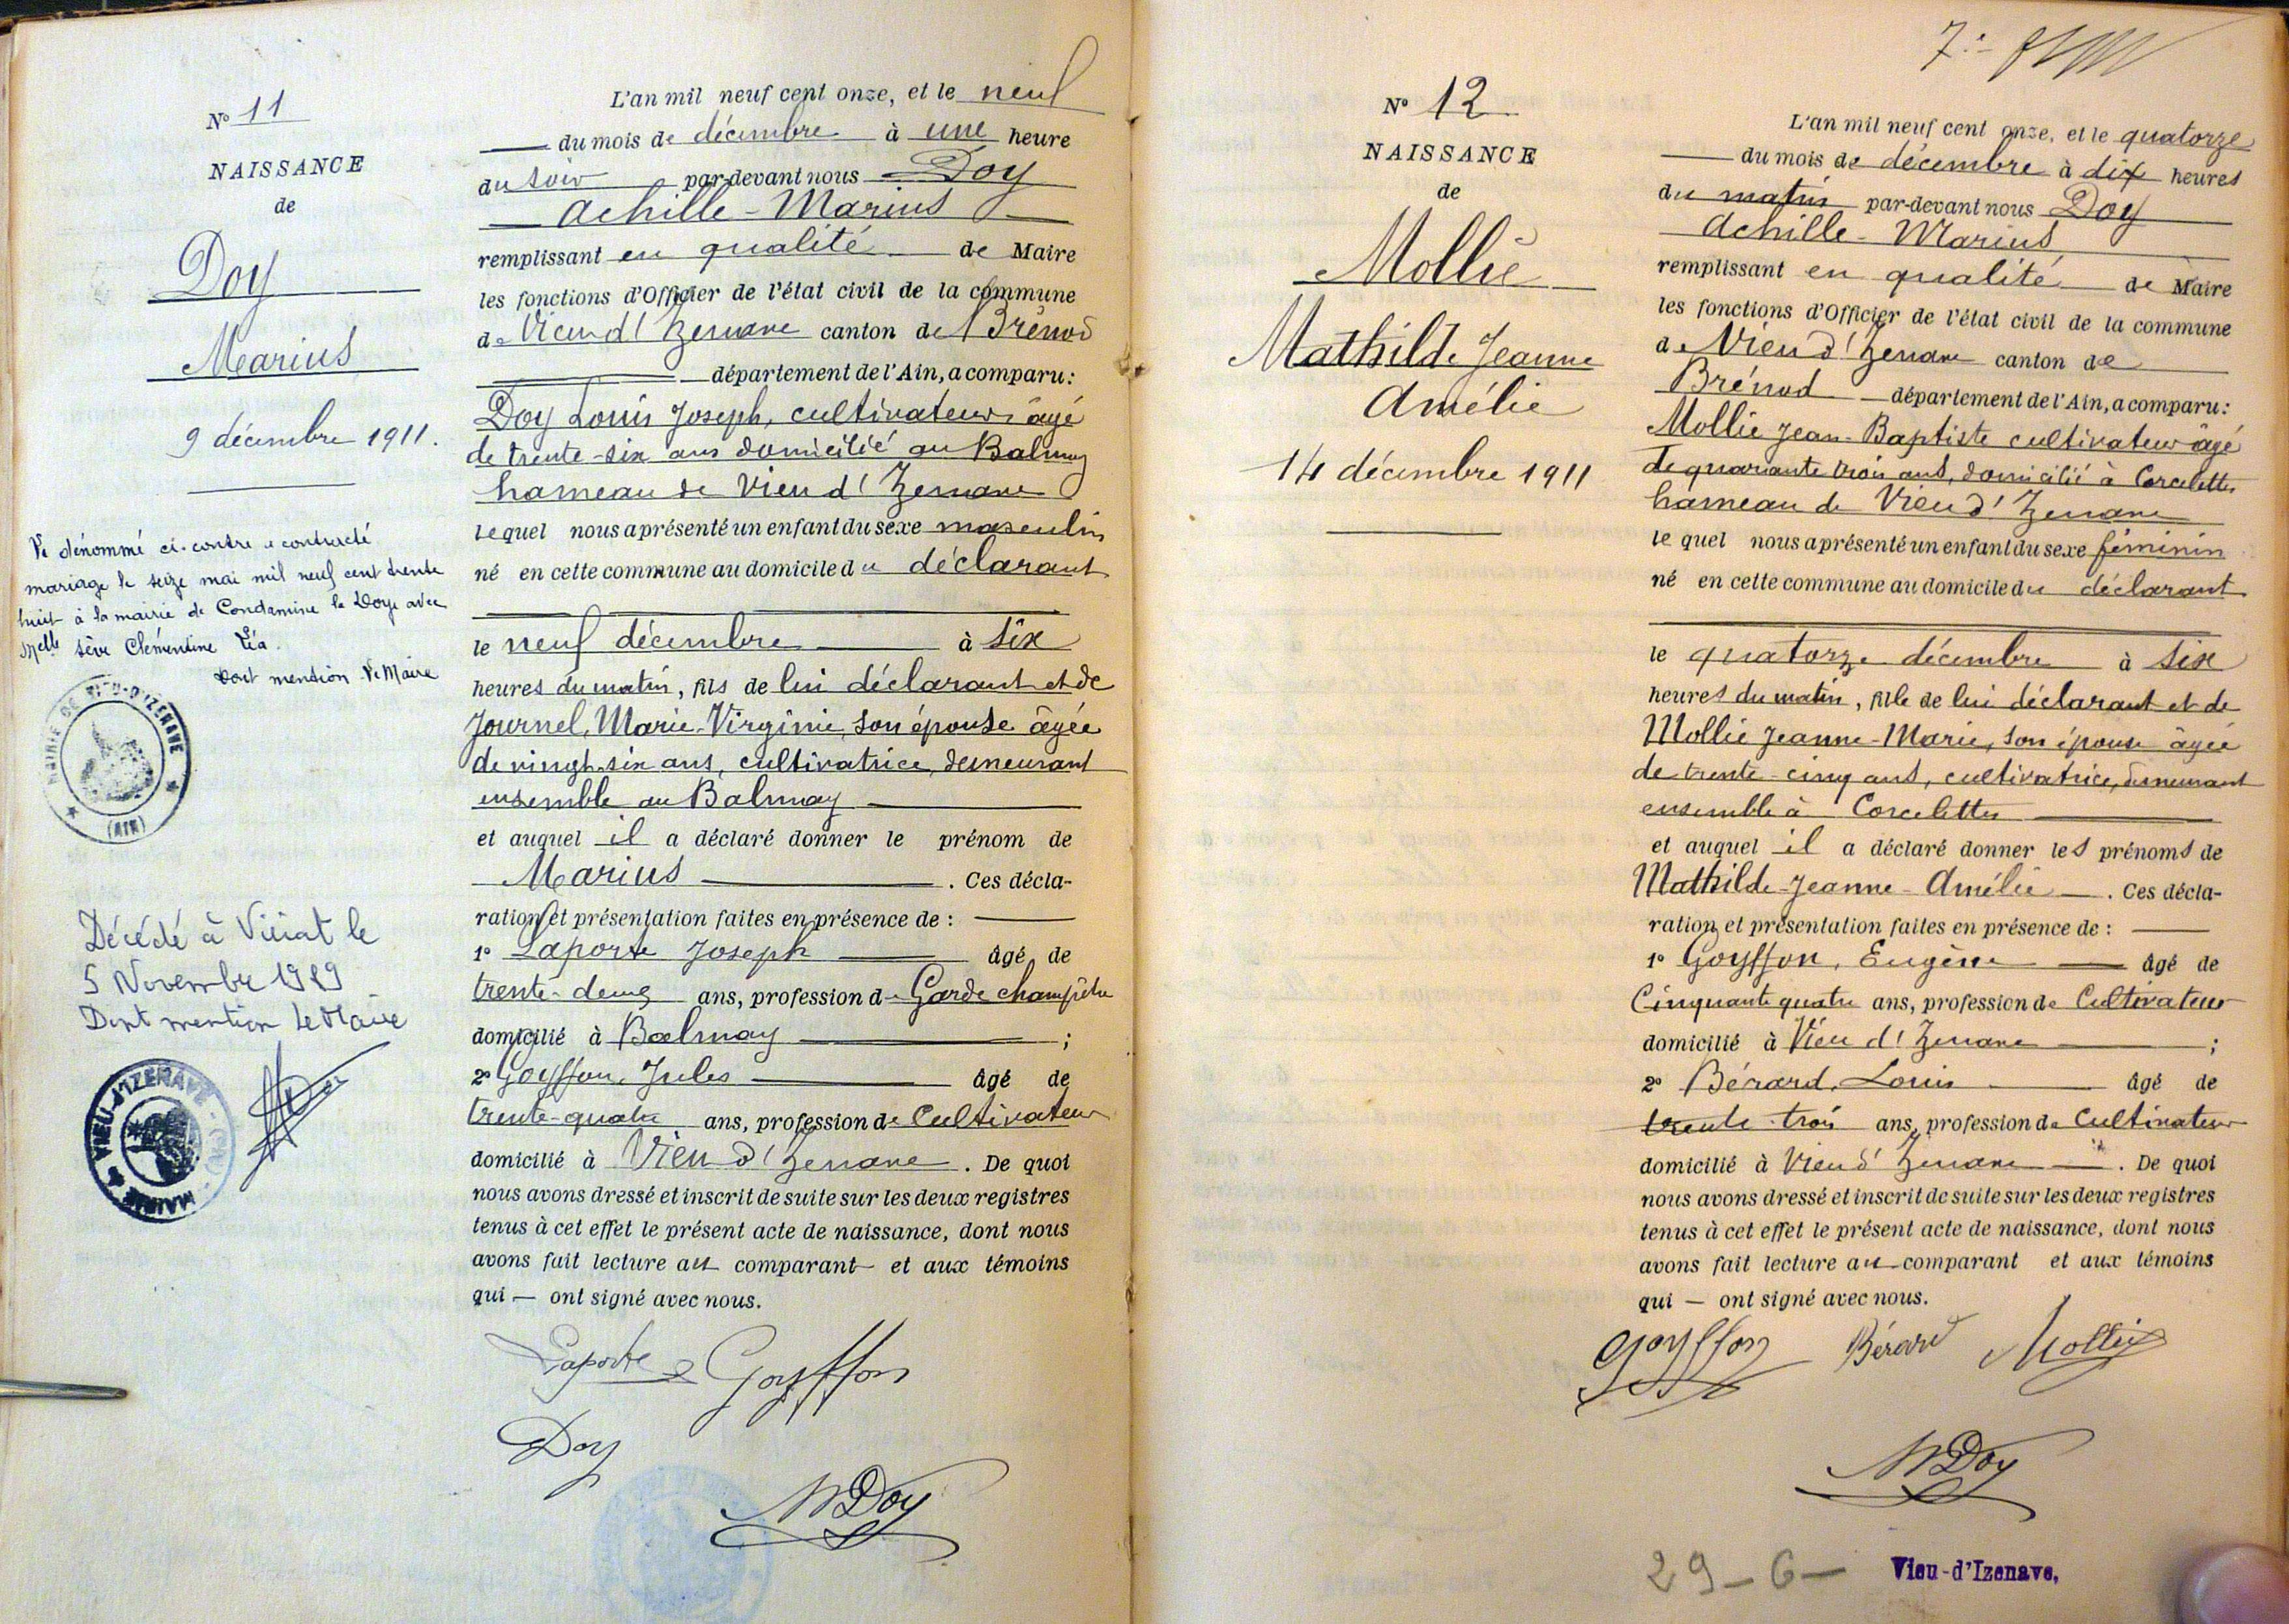 N° 11
NAISSANCE
de
Doy
Marius
9 décembre 1911.
Le dénommé ci-contre a contracté
mariage le seize mai mil neuf cent trente
huit à la mairie de Condamine la Doye avec
Melle Sève Clémentine Léa.
Dont mention Le Maire
MAIRIE DE VIEU-D'IZENAVE
(AIN)
Décédé à Viriat le
5 Novembre 1989
Dont mention Le Maire
MAIRIE de VIEU-D'IZENAVE - (AIN)
L'an mil neuf cent onze, et le neuf
du mois de décembre à une heure
du soir par-devant nous Doy
Achille-Marius
remplissant en qualité de Maire
les fonctions d'Officier de l'état civil de la commune
de Vieu d'Izenave canton de Brénod
département de l'Ain, a comparu:
Doy Louis Joseph, cultivateur âgé
de trente-six ans domicilié au Balmay
hameau de Vieu d'Izenave
lequel nous a présenté un enfant du sexe masculin
né en cette commune au domicile du déclarant
le neuf décembre à six
heures du matin, fils de lui déclarant et de
Journel, Marie-Virginie, son épouse âgée
de vingt-six ans, cultivatrice, demeurant
ensemble au Balmay
et auquel il a déclaré donner le prénom de
Marius. Ces décla-
ration et présentation faites en présence de :
1° Laporte Joseph âgé de
trente-deux ans, profession de Garde champêtre
domicilié à Balmay ;
2° Goyffon, Jules âgé de
trente-quatre ans, profession de Cultivateur
domicilié à Vieu d'Izenave. De quoi
nous avons dressé et inscrit de suite sur les deux registres
tenus à cet effet le présent acte de naissance, dont nous
avons fait lecture au comparant et aux témoins
qui — ont signé avec nous.
Laporte Goyffon
Doy
MDoy
7
N° 12
NAISSANCE
de
Mollie
Mathilde Jeanne
Amélie
14 décembre 1911
L'an mil neuf cent onze, et le quatorze
du mois de décembre à dix heures
du matin par-devant nous Doy
Achille-Marius
remplissant en qualité de Maire
les fonctions d'Officier de l'état civil de la commune
de Vieu d'Izenave canton de
Brénod département de l'Ain, a comparu:
Mollie Jean-Baptiste cultivateur âgé
de quarante trois ans, domicilié à Corcelettes
hameau de Vieu d'Izenave
lequel nous a présenté un enfant du sexe féminin
né en cette commune au domicile du déclarant
le quatorze décembre à six
heures du matin, fille de lui déclarant et de
Mollie Jeanne-Marie, son épouse âgée
de trente-cinq ans, cultivatrice, demeurant
ensemble à Corcelettes
et auquel il a déclaré donner les prénoms de
Mathilde-Jeanne-Amélie. Ces décla-
ration et présentation faites en présence de :
1° Goyffon, Eugène âgé de
Cinquante quatre ans, profession de Cultivateur
domicilié à Vieu d'Izenave ;
2° Bérard, Louis âgé de
trente-trois ans, profession de Cultivateur
domicilié à Vieu d'Izenave. De quoi
nous avons dressé et inscrit de suite sur les deux registres
tenus à cet effet le présent acte de naissance, dont nous
avons fait lecture au comparant et aux témoins
qui — ont signé avec nous.
Goyffon Bérard Mollie
MDoy
29-6- Vieu-d'Izenave,